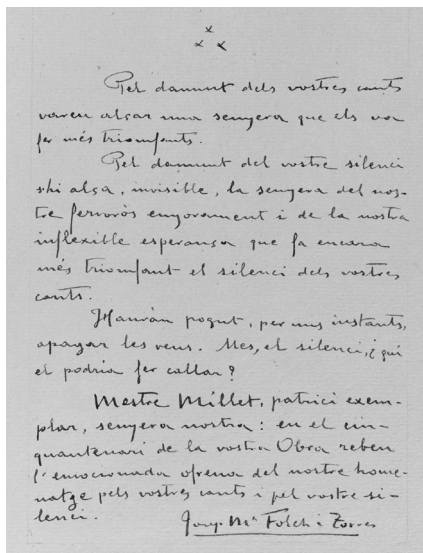 x
x x
Pel damunt dels vostres cants
vareu alçar una senyera que els va
fer més triomfants.
Pel damunt del vostre silenci
s'hi alça, invisible, la senyera del nos-
tre fervoròs enyorament i de la nostra
inflexible esperança que fa encara
més triomfant el silenci dels vostres
cants.
Hauràn pogut, per uns instants,
apagar les veus. Mes, el silenci, ¿qui
el podria fer callar?
Mestre Millet, patrici exem-
plar, senyera nostra: en el cin-
quantenari de la vostra Obra reben
l'emocionada ofrena del nostre home-
natge pels vostres cants i pel vostre si-
lenci.
Josep Mª Folch i Torres